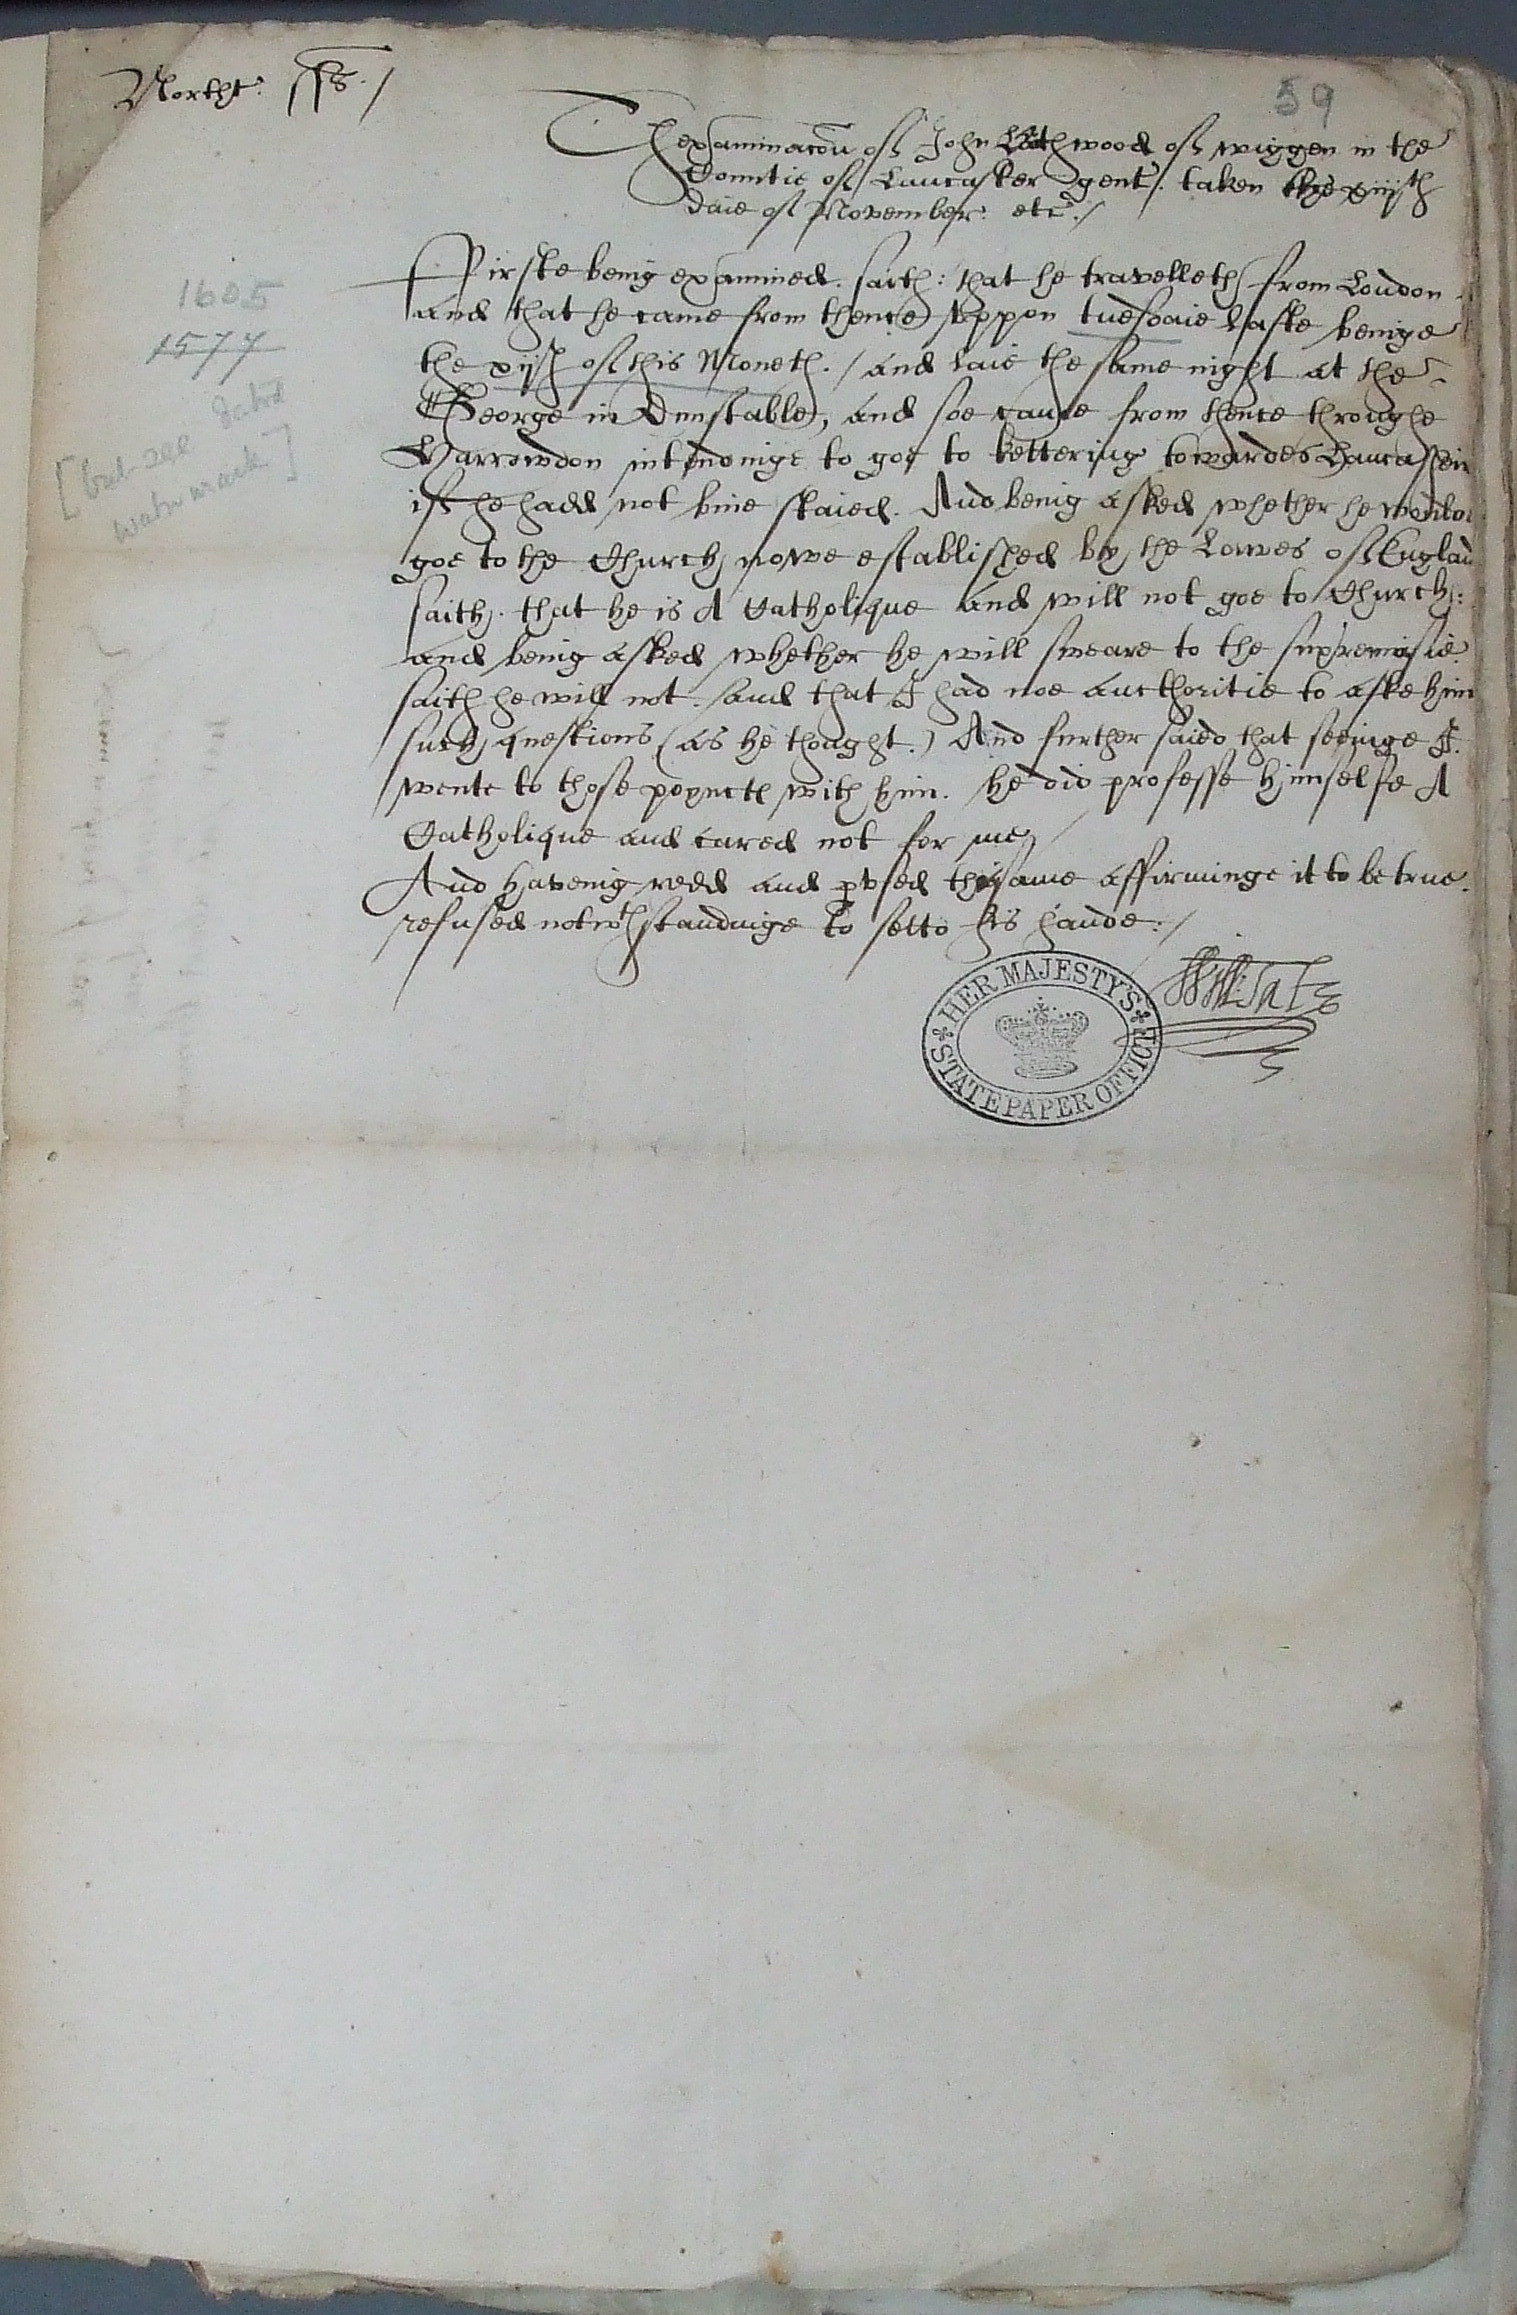 Northt: ss. /
59
Thexaminacon of John Lathwood of wiggen in the
Countie of Lancaster gent. taken the xiiijth
daie of November. etc. /
1605
1577
[but see date
watermark]
Firste being examined. saith: that he travelleth from London
and that he came from thence vppon tuesdaie laste beinge
the xijth of this Moneth. / and laie the same night at the
George in Dunstable, and soe came from thence throughe
Harrowdon intendinge to goe to kettering towardes
if he hadd not bine staied. And being asked whether he would
goe to the Church nowe established by the Lawes of England
saith. that he is A Catholique and will not goe to Church:
and being asked whether he will sweare to the supremisie.
saith he will not. and that I had noe aucthoritie to aske him
such questions (as he thought.) And further saied that seeinge I.
wente to those poynctes with him. he did professe himselfe A
Catholique and cared not for me /
And havenig redd and pvsed the same affirminge it to be true.
refused notwthstandinge to setto his hande: /
Will: Tate
HER MAJESTY'S
STATE PAPER OFFICE